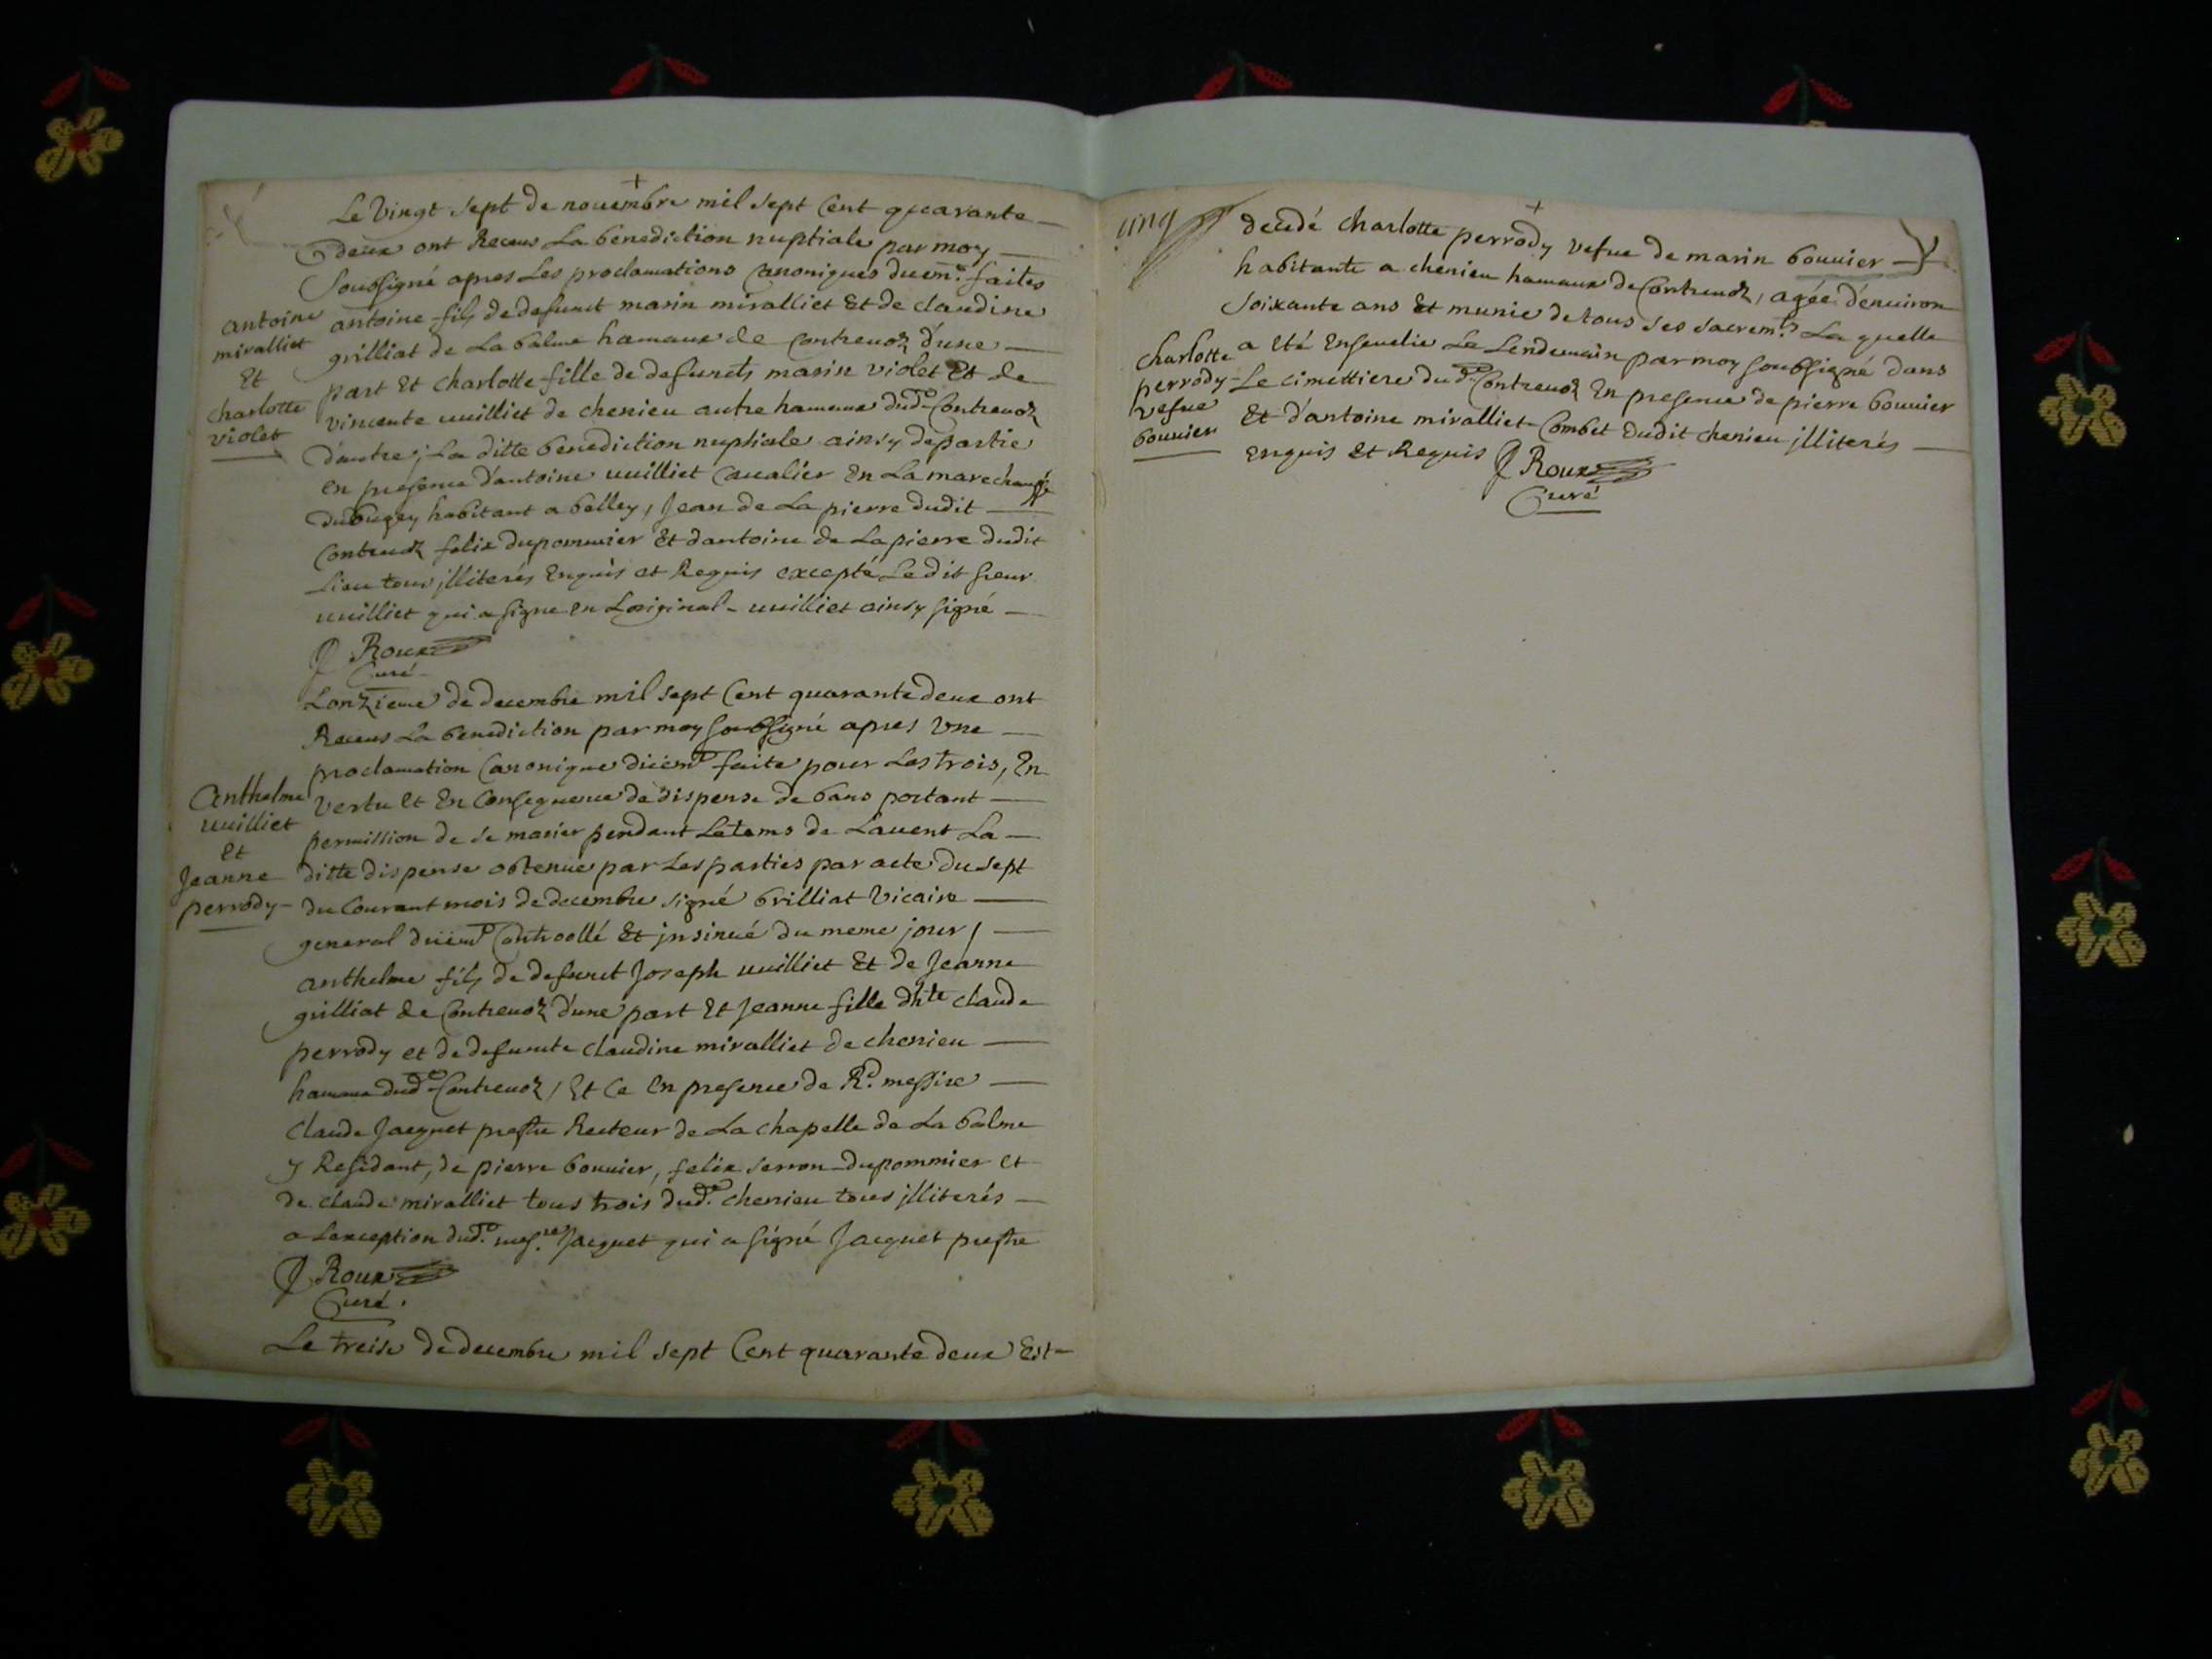 +
Le vingt sept de nouembre mil sept Cent quarante
deux ont Receus La benediction nuptiale par moy
Soubsigné apres Les proclamations Canoniques duem.^t faites
antoine fils de defunct marin miralliet Et de claudine
grilliat de La balme hamaux de Contreuoz d'une
part Et Charlotte fille de defuncts marin violet Et de
vincente uuilliet de chenieu autre hamaux dud.^t Contreuoz
d'autre; La ditte benediction nuptiale ainsy departie
En presence d'antoine uuilliet Caualier En La marechaussé
du bugey habitant a belley, Jean de La pierre dudit
Contreuoz felix dupommier Et dantoine de Lapierre dudit
Lieu tous jlliterés Enquis et Requis excepté Le dit sieur
uuilliet qui a signe en Loriginal - uuilliet ainsy signé
antoine
miralliet
Et
charlotte
violet
J Roux
Curé
Lonzieme de decembre mil sept Cent quarante deux ont
Receus La benediction par moy soubsigné apres Une
proclamation Canonique düem.^t faite pour Les trois, En
vertu Et En Consequence de dispense de bans portant
permission de se marier pendant Le tems de Lauent La
ditte dispense obtenue par Les parties par acte du sept
du Courant mois de decembre signé brilliat Vicaire
general düem.^t Controollé Et jnsinué du meme jour,
anthelme fils de defunct Joseph uuilliet Et de Jeanne
grilliat de Contreuoz d'une part Et Jeanne fille d'h^te claude
perrody et de defuncte claudine miralliet de chenieu
hamaux dud.^t Contreuoz, Et Ce En presence de R.^d messire
Claude Jacquet prestre Recteur de La chapelle de La balme
y Residant, de pierre bouuier, felix serron dupommier et
de claude miralliet tous trois dud.^t chenieu tous jlliterés
a Lexception dud.^t mes.^re Jacquet qui a signé Jacquet prestre
Anthelme
uuilliet
Et
Jeanne
perrody
J Roux
Curé.
Le treise de decembre mil sept Cent quarante deux Est
cinq
+
decedé charlotte perrody vefue de marin bouuier
habitante a chenieu hamaux de Contreuoz, agée d'enuiron
Soixante ans Et munie de tous ses sacrem.^ts La quelle
a Eté Enseuelie Le Lendemain par moy soubsigné dans
Le cimettiere dud.^t Contreuoz En presence de pierre bouuier
Et d'antoine miralliet-Combet dudit chenieu jlliterés
Enquis Et Requis
charlotte
perrody
vefue
bouuier
J Roux
Curé